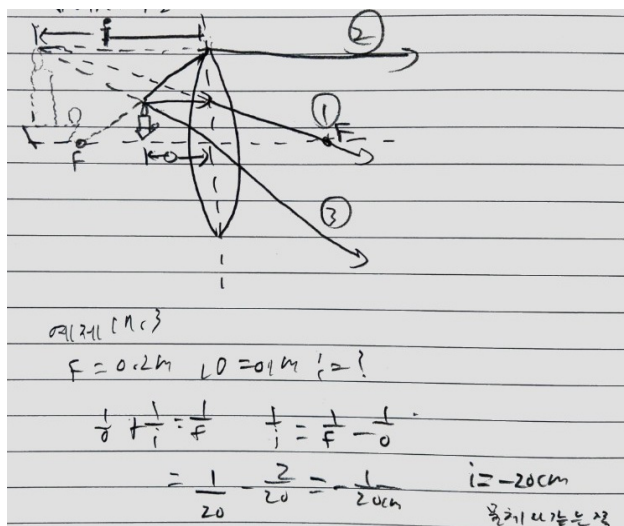 i
②
①
F
F
o
③
예제
F = 0.2m , O = 0.1m i = ?
1/o + 1/i = 1/f   1/i = 1/f - 1/o
= 1/20 - 2/20 = -1/20cm   i = -20cm
물체와 같은 쪽